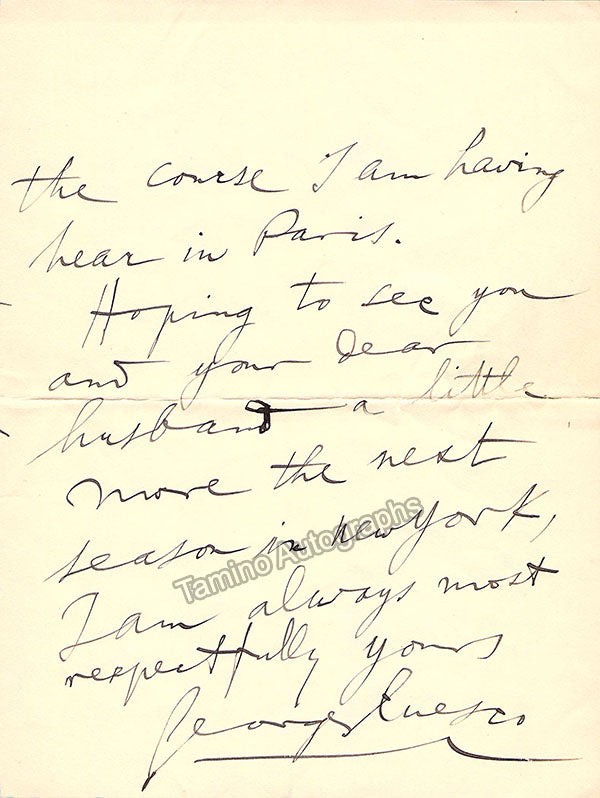 the course I am having
hear in Paris.
Hoping to see you
and your dear
husband a little
more the next
season in new york,
I am always most
respectfully yours
Georges Enesco
Tamino Autographs